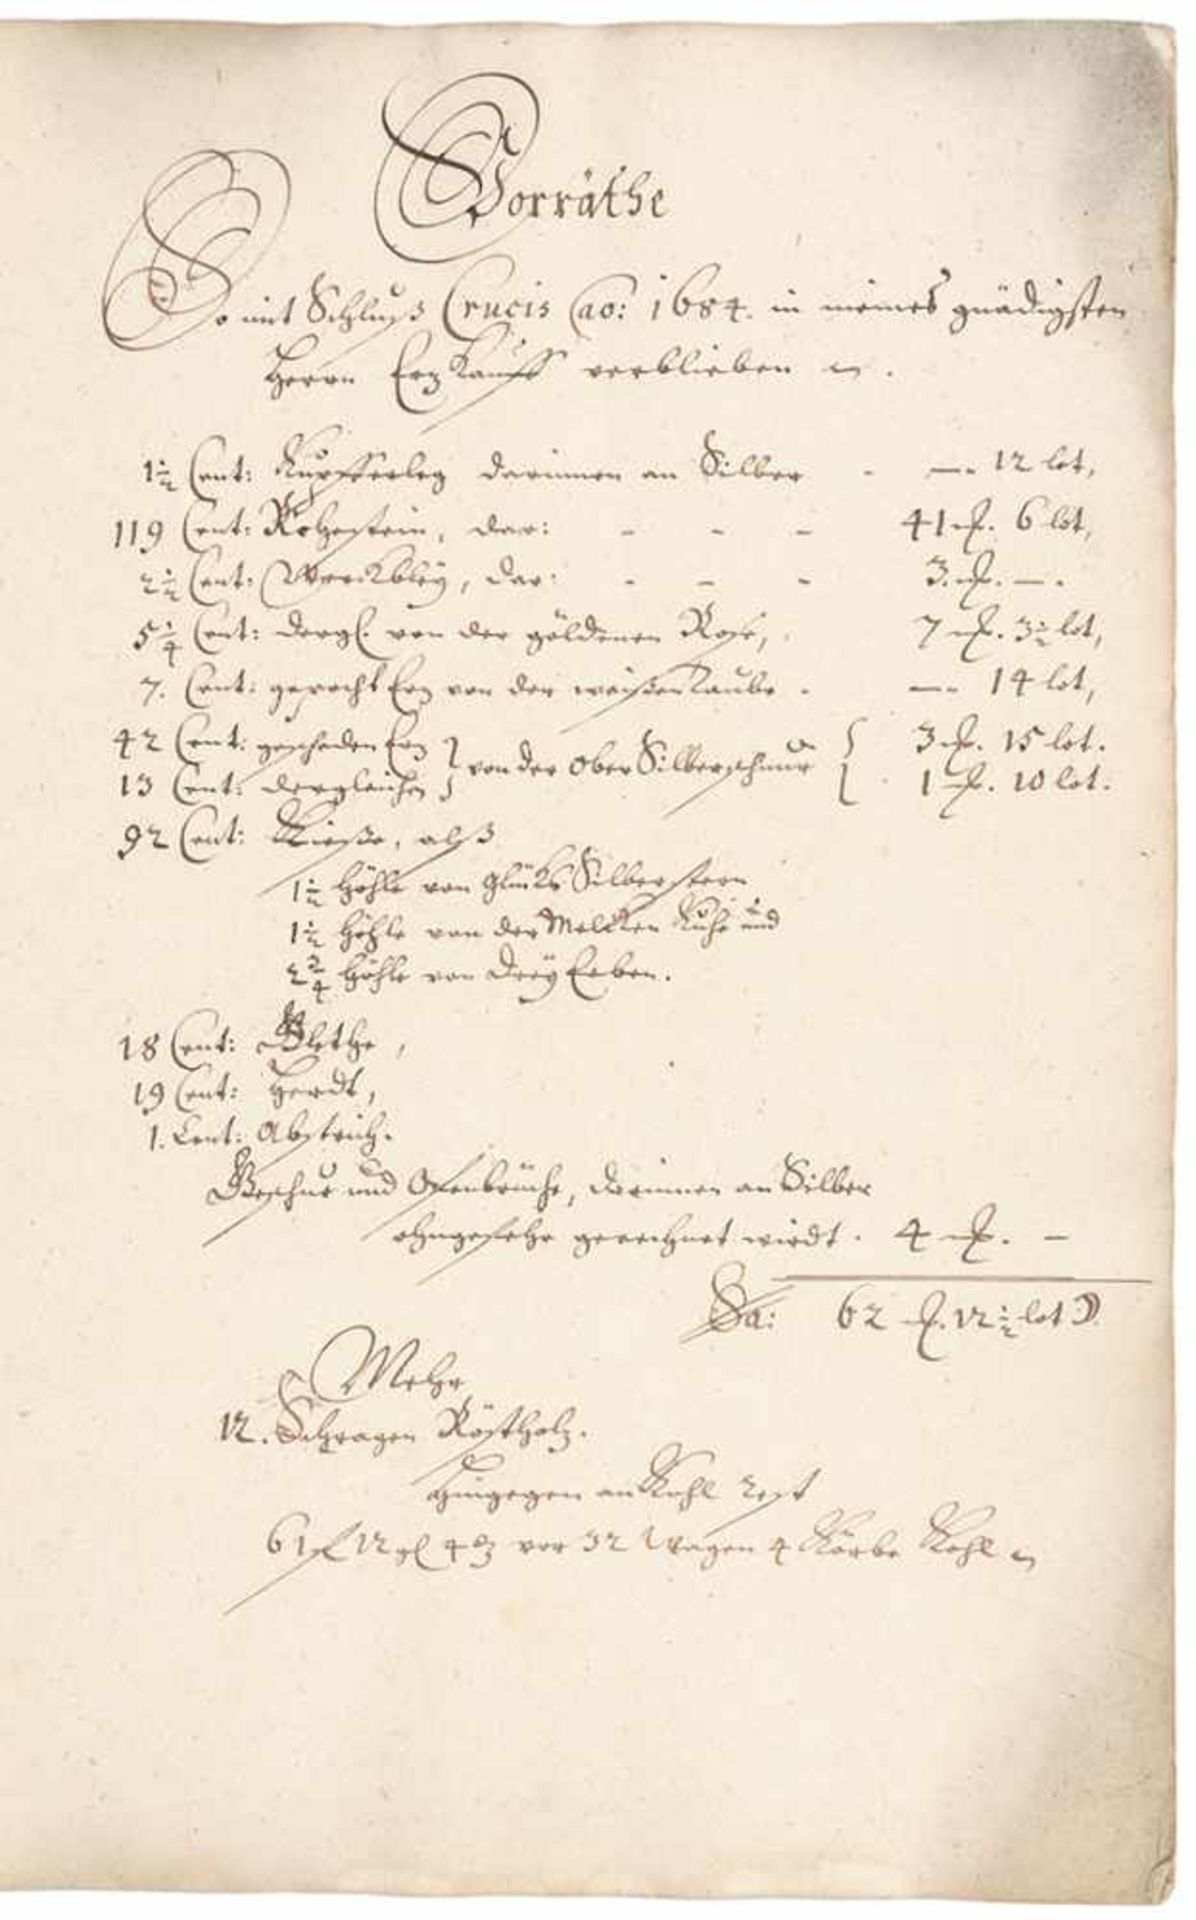 Vorräthe
So mit Schluß Crucis ao: 1684. in meines gnädigsten
Herrn Erz Kauff verblieben
1½ Cent: Kupfferleg darinnen an Silber - —. 12 lot,
119 Cent: Rohestein, dar: - - - 41 M. 6 lot,
2½ Cent: Werckbley, dar: - - - 3. M. —.
5¼ Cent: dergl. von der göldenen Rose, 7 M. 3½ lot,
7. Cent: gepocht Erz von der weißen Taube - —. 14 lot,
42 Cent: gescheden Erz } von der Ober Silberschnur { 3 M. 15 lot.
13 Cent: dergleichen 1 M. 10 lot.
92 Cent: Kieße, alß
1½ Höhle von Glücks Silberstern
1½ Höhle von der Melcken Kuhe und
2¾ Höhle von Drey Erben.
18 Cent: Glethe,
19 Cent: Herdt,
1. Cent: Abstrich.
Geschur und Ofenbrüche, darinnen an Silber
ohngefehr gerechnet wirdt. 4 M. —
Sa: 62 M. 12½ lot
Mehr
12. Schragen Röstholz.
Hingegen an Kohl rest
61 f 12 gl 4 ₰ vor 32 Wagen 4 Körbe Kohl